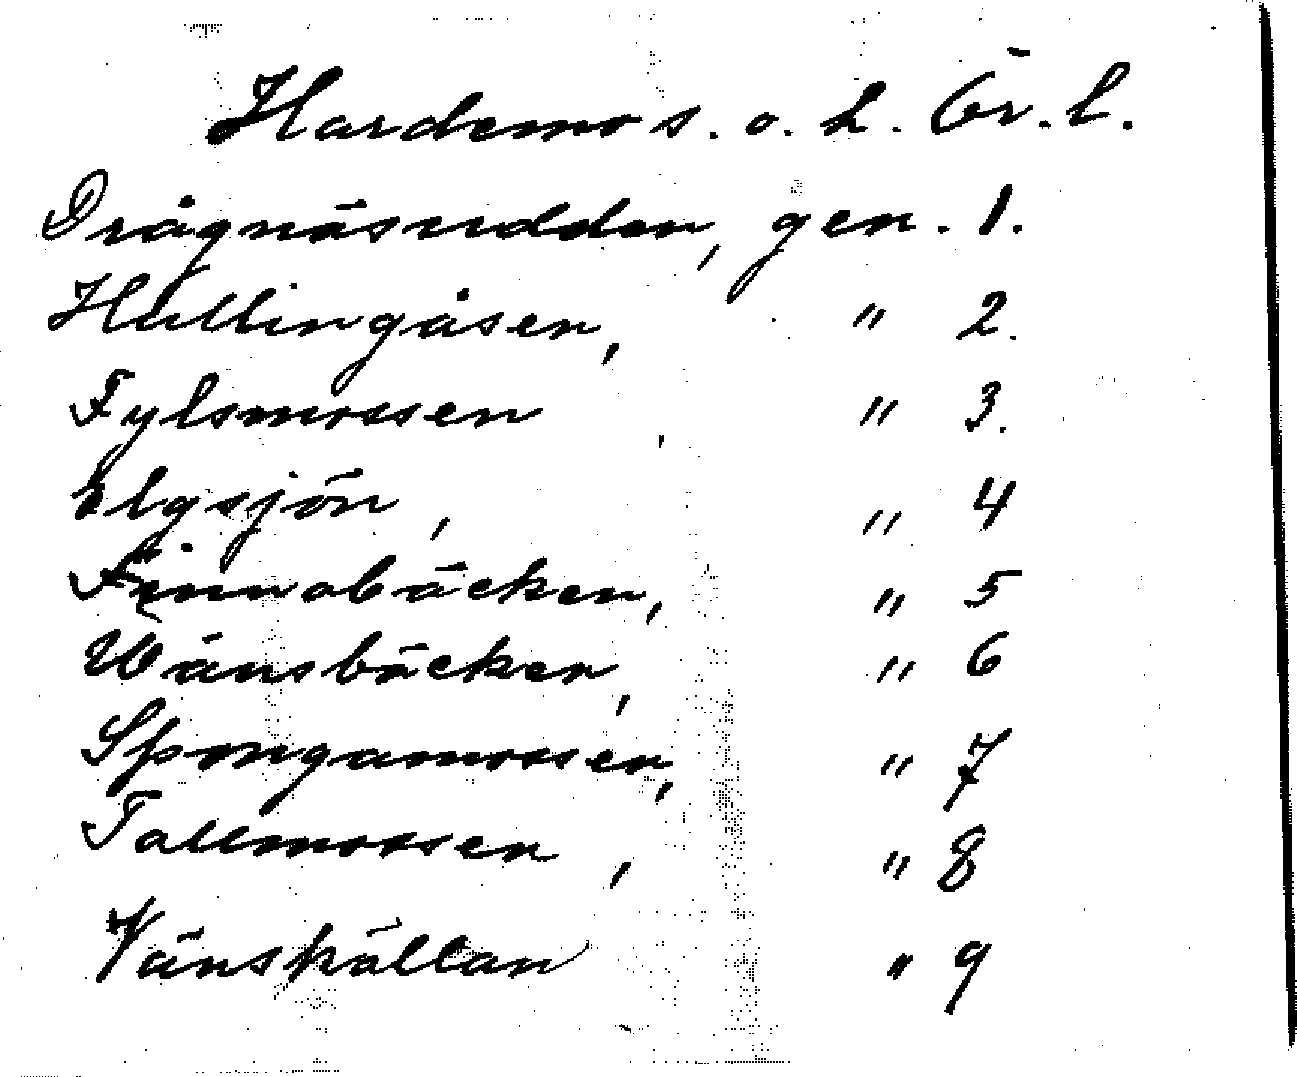 Hardemo s. o. h. Ör. l.
Drågnäsudden, gen. 1.
Hullingåsen, " 2.
Fylsmossen, " 3.
Elgsjön, " 4
Finnabäcken, " 5
Wänsbäcken, " 6
Spongamossen, " 7
Tallmossen, " 8
Vänskällan " 9